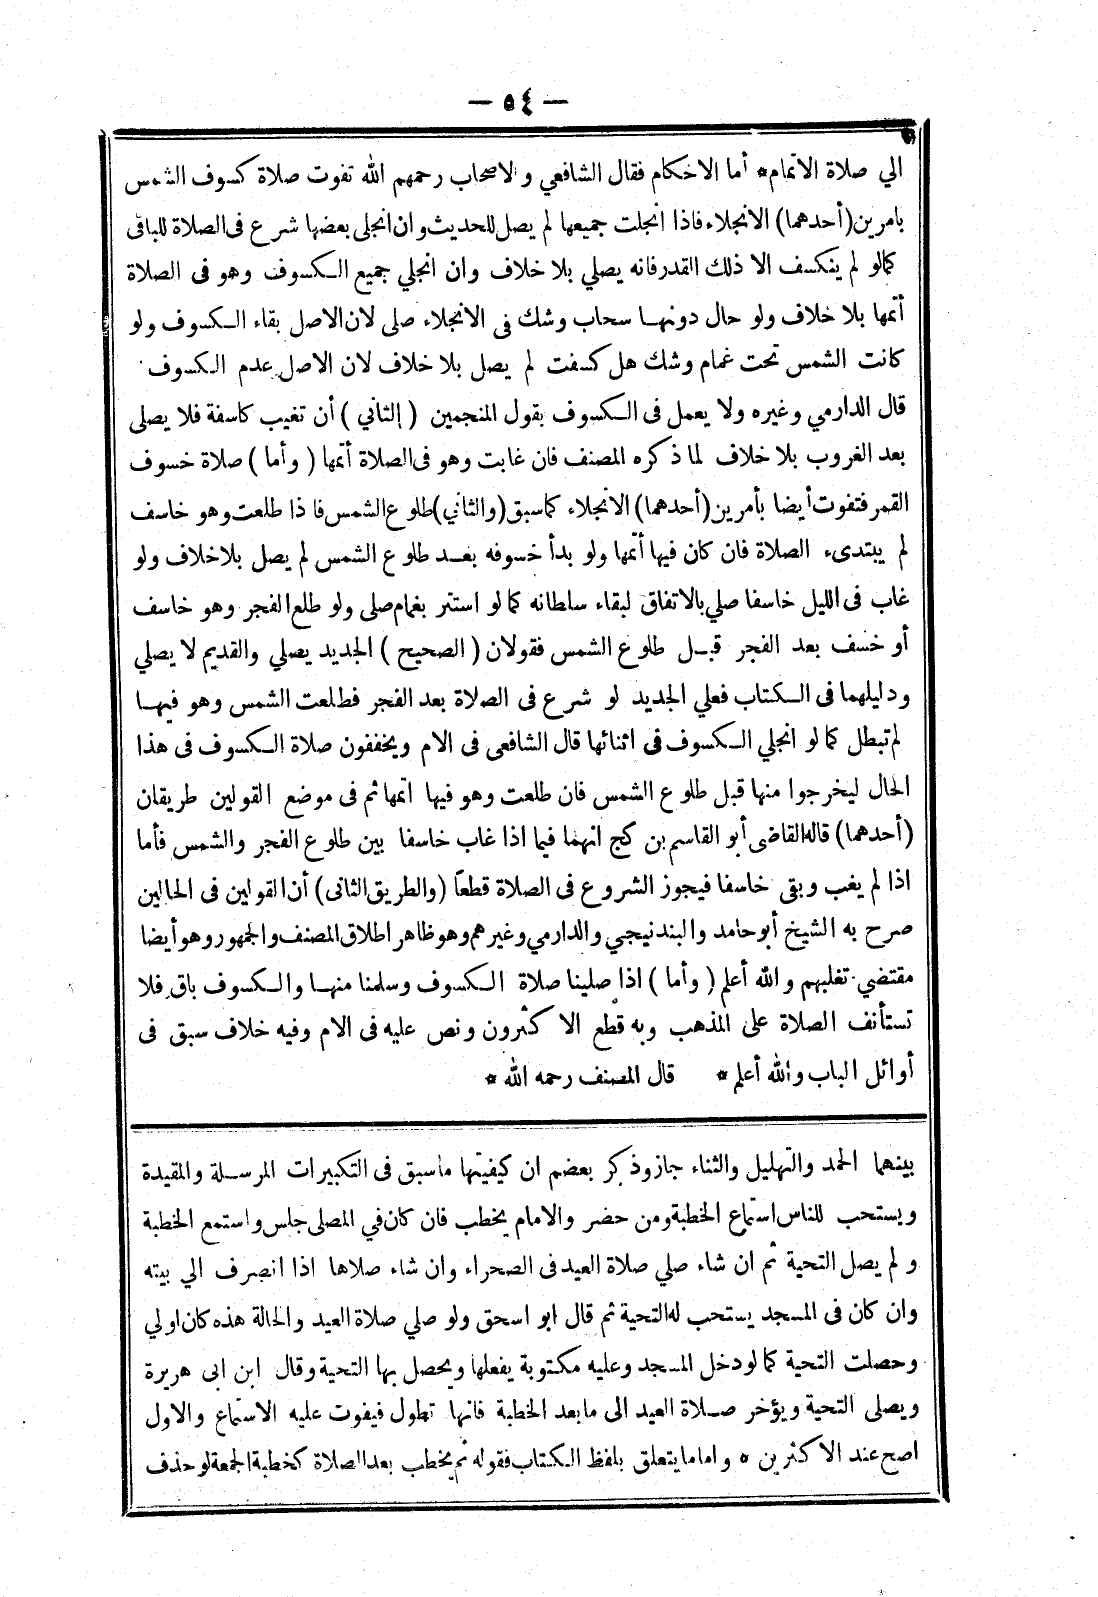 — ٥٤ —
الي صلاة الاتمام* أما الاحكام فقال الشافعي والاصحاب رحمهم الله تفوت صلاة كسوف الشمس
بامرين (أحدهما) الانجلاء فاذا انجلت جميعها لم يصل للحديث وان انجلى بعضها شرع فى الصلاة للباقى
كما لو لم ينكسف الا ذلك القدر فانه يصلي بلا خلاف وان انجلي جميع الكسوف وهو فى الصلاة
أتمها بلا خلاف ولو حال دونها سحاب وشك فى الانجلاء صلى لان الاصل بقاء الكسوف ولو
كانت الشمس تحت غمام وشك هل كسفت لم يصل بلا خلاف لان الاصل عدم الكسوف
قال الدارمي وغيره ولا يعمل فى الكسوف بقول المنجمين (الثاني) أن تغيب كاسفة فلا يصلى
بعد الغروب بلا خلاف لما ذكره المصنف فان غابت وهو فى الصلاة أتمها (وأما) صلاة خسوف
القمر فتفوت أيضا بأمرين (أحدهما) الانجلاء كما سبق (والثاني) طلوع الشمس فاذا طلعت وهو خاسف
لم يبتدىء الصلاة فان كان فيها أتمها ولو بدأ خسوفه بعد طلوع الشمس لم يصل بلا خلاف ولو
غاب فى الليل خاسفا صلي بالاتفاق لبقاء سلطانه كما لو استتر بغمام صلى ولو طلع الفجر وهو خاسف
أو خسف بعد الفجر قبل طلوع الشمس فقولان (الصحيح) الجديد يصلي والقديم لا يصلي
ودليلهما فى الكتاب فعلي الجديد لو شرع فى الصلاة بعد الفجر فطلعت الشمس وهو فيها
لم تبطل كما لو انجلي الكسوف فى اثنائها قال الشافعى فى الام ويخففون صلاة الكسوف فى هذا
الحال ليخرجوا منها قبل طلوع الشمس فان طلعت وهو فيها اتمها ثم فى موضع القولين طريقان
(أحدهما) قاله القاضى أبو القاسم بن كج انهما فيما اذا غاب خاسفا بين طلوع الفجر والشمس فأما
اذا لم يغب وبقى خاسفا فيجوز الشروع فى الصلاة قطعًا (والطريق الثانى) أن القولين فى الحالين
صرح به الشيخ أبو حامد والبندنيجي والدارمي وغيرهم وهو ظاهر اطلاق المصنف والجمهور وهو أيضا
مقتضي تغلبهم والله أعلم (وأما) اذا صلينا صلاة الكسوف وسلمنا منها والكسوف باق فلا
تستأنف الصلاة على المذهب وبه قطع الاكثرون ونص عليه فى الام وفيه خلاف سبق فى
أوائل الباب والله أعلم* قال المصنف رحمه الله *
بينهما الحمد والتهليل والثناء جاز وذكر بعضهم ان كيفيتها ما سبق فى التكبيرات المرسلة والمقيدة
ويستحب للناس استماع الخطبة ومن حضر والامام يخطب فان كان في المصلى جلس واستمع الخطبة
ولم يصل التحية ثم ان شاء صلي صلاة العيد فى الصحراء وان شاء صلاها اذا انصرف الي بيته
وان كان فى المسجد يستحب له التحية ثم قال ابو اسحق ولو صلي صلاة العيد والحالة هذه كان اولي
وحصلت التحية كما لو دخل المسجد وعليه مكتوبة يفعلها ويحصل بها التحية وقال ابن ابى هريرة
ويصلى التحية ويؤخر صلاة العيد الى ما بعد الخطبة فانها تطول فيفوت عليه الاستماع والاول
اصح عند الاكثرين * واما ما يتعلق بلفظ الكتاب فقوله ثم يخطب بعد الصلاة كخطبة الجمعة لو حذف